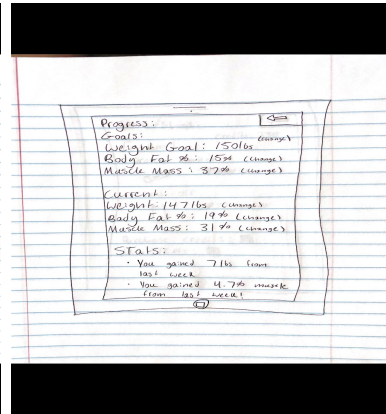 Progress:
Goals:
(change)
Weight Goal: 150lbs
Body Fat %: 15% (change)
Muscle Mass: 37% (change)
Current:
Weight: 147lbs (change)
Body Fat %: 19% (change)
Muscle Mass: 31% (change)
STats:
• You gained 7lbs from
last week
• You gained 4.7% muscle
from last week!